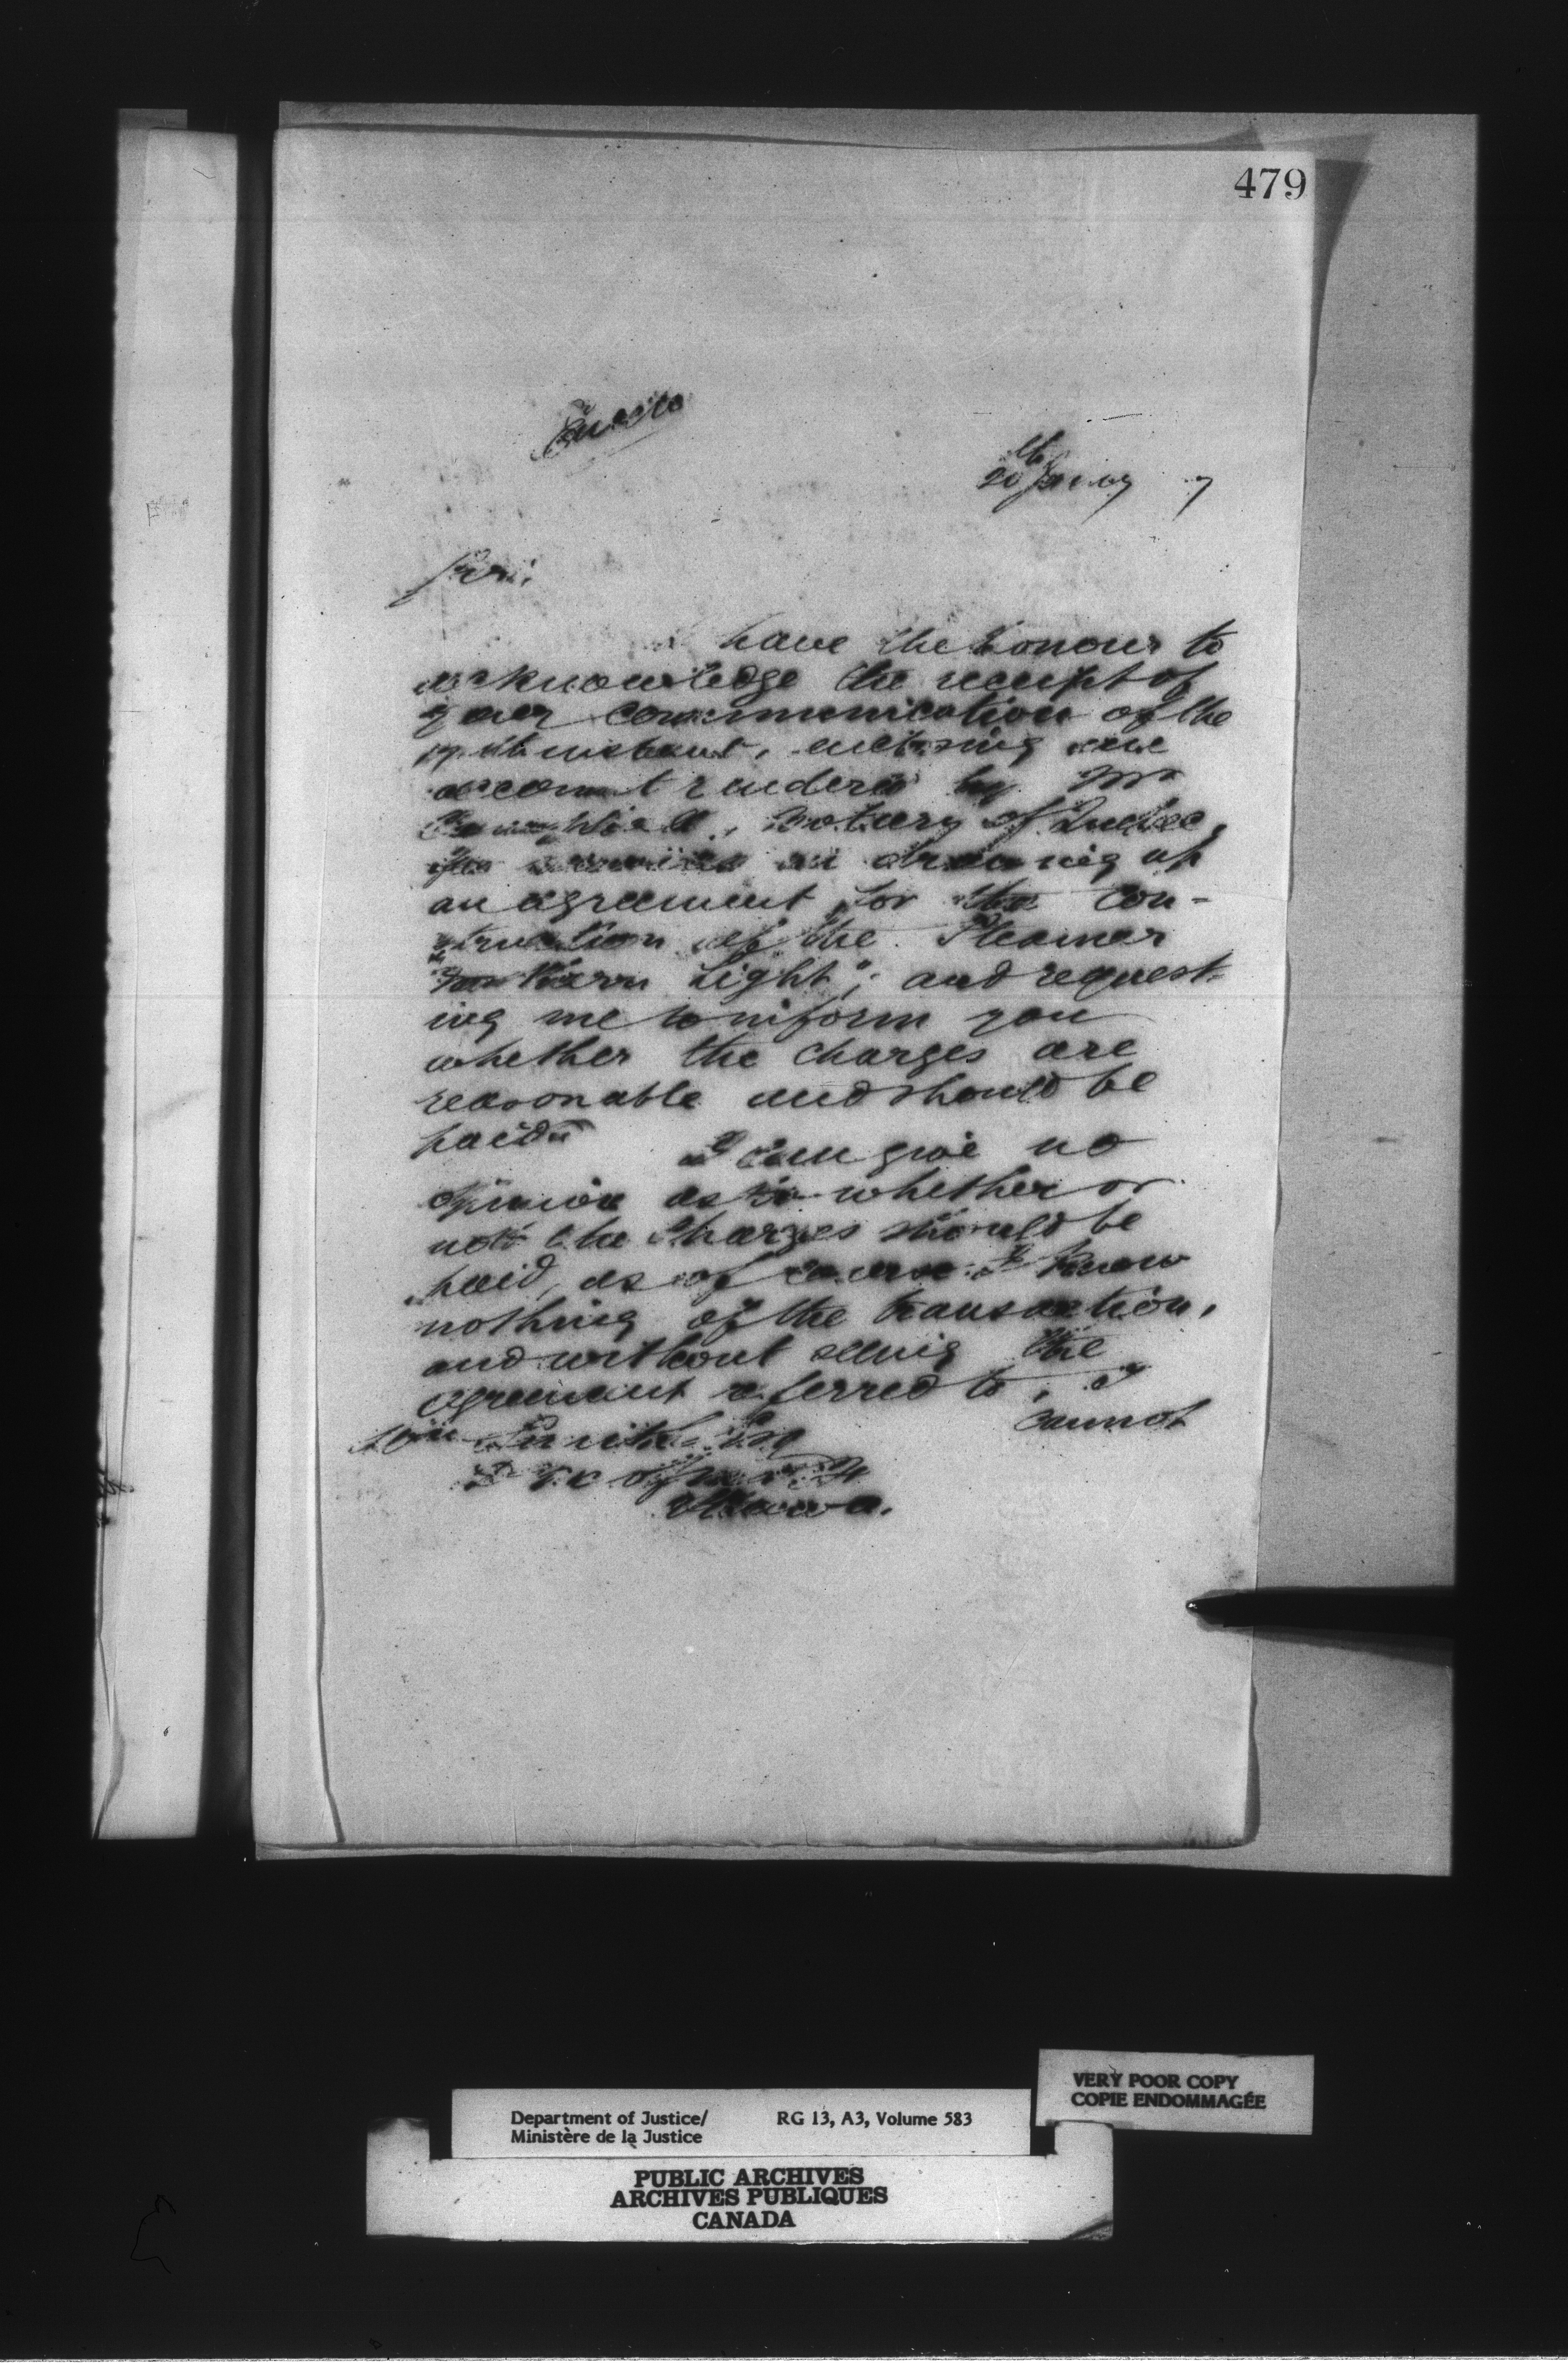 479
20th Jany 7
Sir,
have the honour to
acknowledge the receipt of
your communication of the
instant, enclosing an
account rendered by Mr
Campbell, Notary of Quebec,
for services in drawing up
an agreement for the con-
struction of the Steamer
"Northern Light"; and request-
ing me to inform you
whether the charges are
reasonable and should be
paid.
I can give no
opinion as to whether or
not the charges should be
paid, as of course I know
nothing of the transaction,
and without seeing the
agreement referred to, I
cannot
Smith Esq
of M & F
Ottawa.
VERY POOR COPY
COPIE ENDOMMAGÉE
Department of Justice/ RG 13, A3, Volume 583
Ministère de la Justice
PUBLIC ARCHIVES
ARCHIVES PUBLIQUES
CANADA